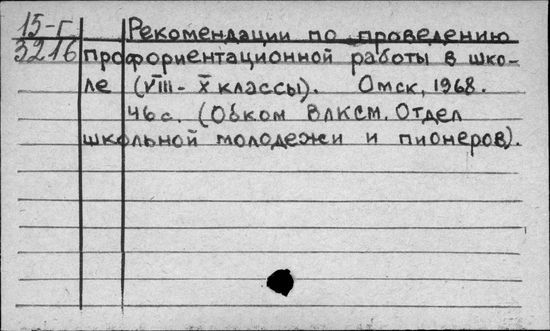 15-г Рекомендации по проведению
3216 профориентационной работы в шко-
ле (VIII- X классы). Омск, 1968.
46 с. (Обком ВЛКСМ. Отдел
школьной молодежи и пионеров).